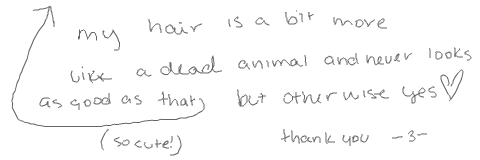 my hair is a bit more
like a dead animal and never looks
as good as that, but otherwise yes♡
(so cute!) thank you -3-